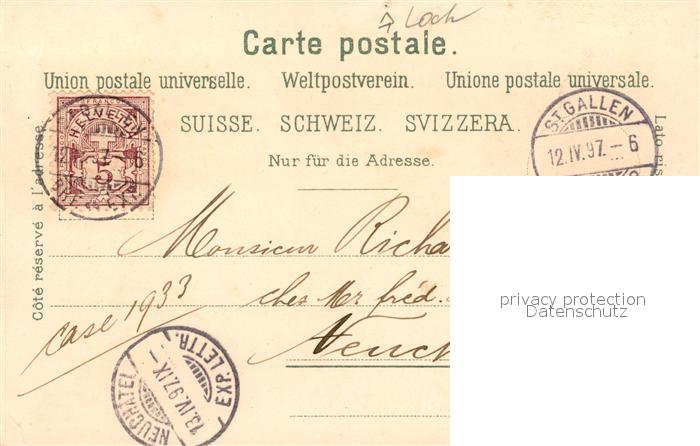 Loch
Carte postale.
Union postale universelle. Weltpostverein. Unione postale universale.
SUISSE. SCHWEIZ. SVIZZERA.
Nur für die Adresse.
Côté réservé à l'adresse.
Lato ris
FRANCO
HELVETIA
5
ST. GALLEN
12.IV.97. – 6
Monsieur Richa
chez Mr fréd.
Neuch
case 1933
NEUCHATEL
13.IV.97.IX –
EXP. LETTR.
privacy protection
Datenschutz